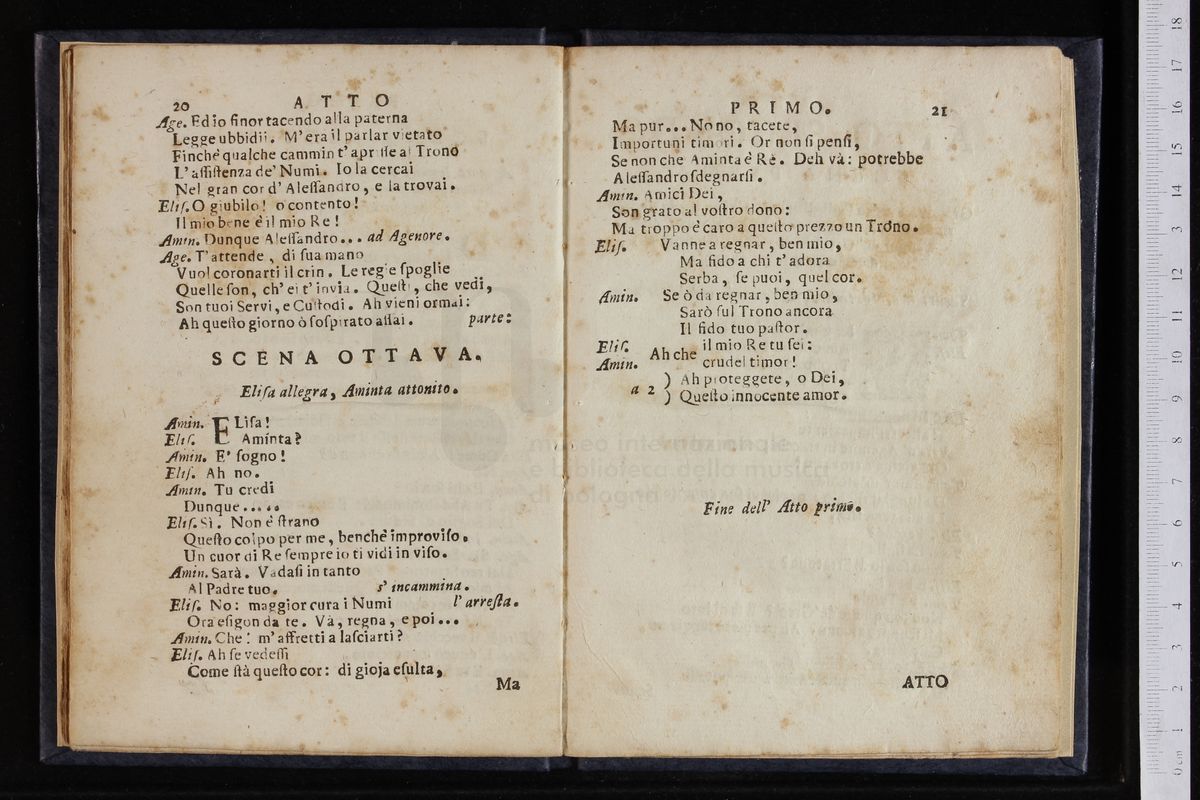 20 ATTO
Age. Ed io finor tacendo alla paterna
Legge ubbidii. M'era il parlar vietato
Finchè qualche cammin t'aprisse al Trono
L'assistenza de' Numi. Io la cercai
Nel gran cor d'Alessandro, e la trovai.
Elis. O giubilo! o contento!
Il mio bene è il mio Re!
Amin. Dunque Alessandro... ad Agenore.
Age. T'attende, di sua mano
Vuol coronarti il crin. Le regie spoglie
Quelle son, ch'ei t'invia. Questi, che vedi,
Son tuoi Servi, e Custodi. Ah vieni ormai:
Ah questo giorno ò sospirato assai. parte:
SCENA OTTAVA.
Elisa allegra, Aminta attonito.
Amin. ELisa!
Elis. Aminta?
Amin. E' sogno!
Elis. Ah no.
Amin. Tu credi
Dunque.....
Elis. Sì. Non è strano
Questo colpo per me, benchè improviso.
Un cuor di Re sempre io ti vidi in viso.
Amin. Sarà. Vadasi in tanto
Al Padre tuo. s'incammina.
Elis. No: maggior cura i Numi l'arresta.
Ora esigon da te. Và, regna, e poi...
Amin. Che! m'affretti a lasciarti?
Elis. Ah se vedessi
Come stà questo cor: di gioja esulta,
Ma
PRIMO. 21
Ma pur... No no, tacete,
Importuni timori. Or non si pensi,
Se non che Aminta è Rè. Deh và: potrebbe
Alessandro sdegnarsi.
Amin. Amici Dei,
Son grato al vostro dono:
Ma troppo è caro a questo prezzo un Trono.
Elis. Vanne a regnar, ben mio,
Ma fido a chi t'adora
Serba, se puoi, quel cor.
Amin. Se ò da regnar, ben mio,
Sarò sul Trono ancora
Il fido tuo pastor.
Elis. Ah che il mio Re tu sei:
Amin. crudel timor!
a 2 ) Ah proteggete, o Dei,
) Questo innocente amor.
Fine dell' Atto primo.
ATTO
museo internazionale
e biblioteca della musica
di bologna
0 cm 1 2 3 4 5 6 7 8 9 10 11 12 13 14 15 16 17 18